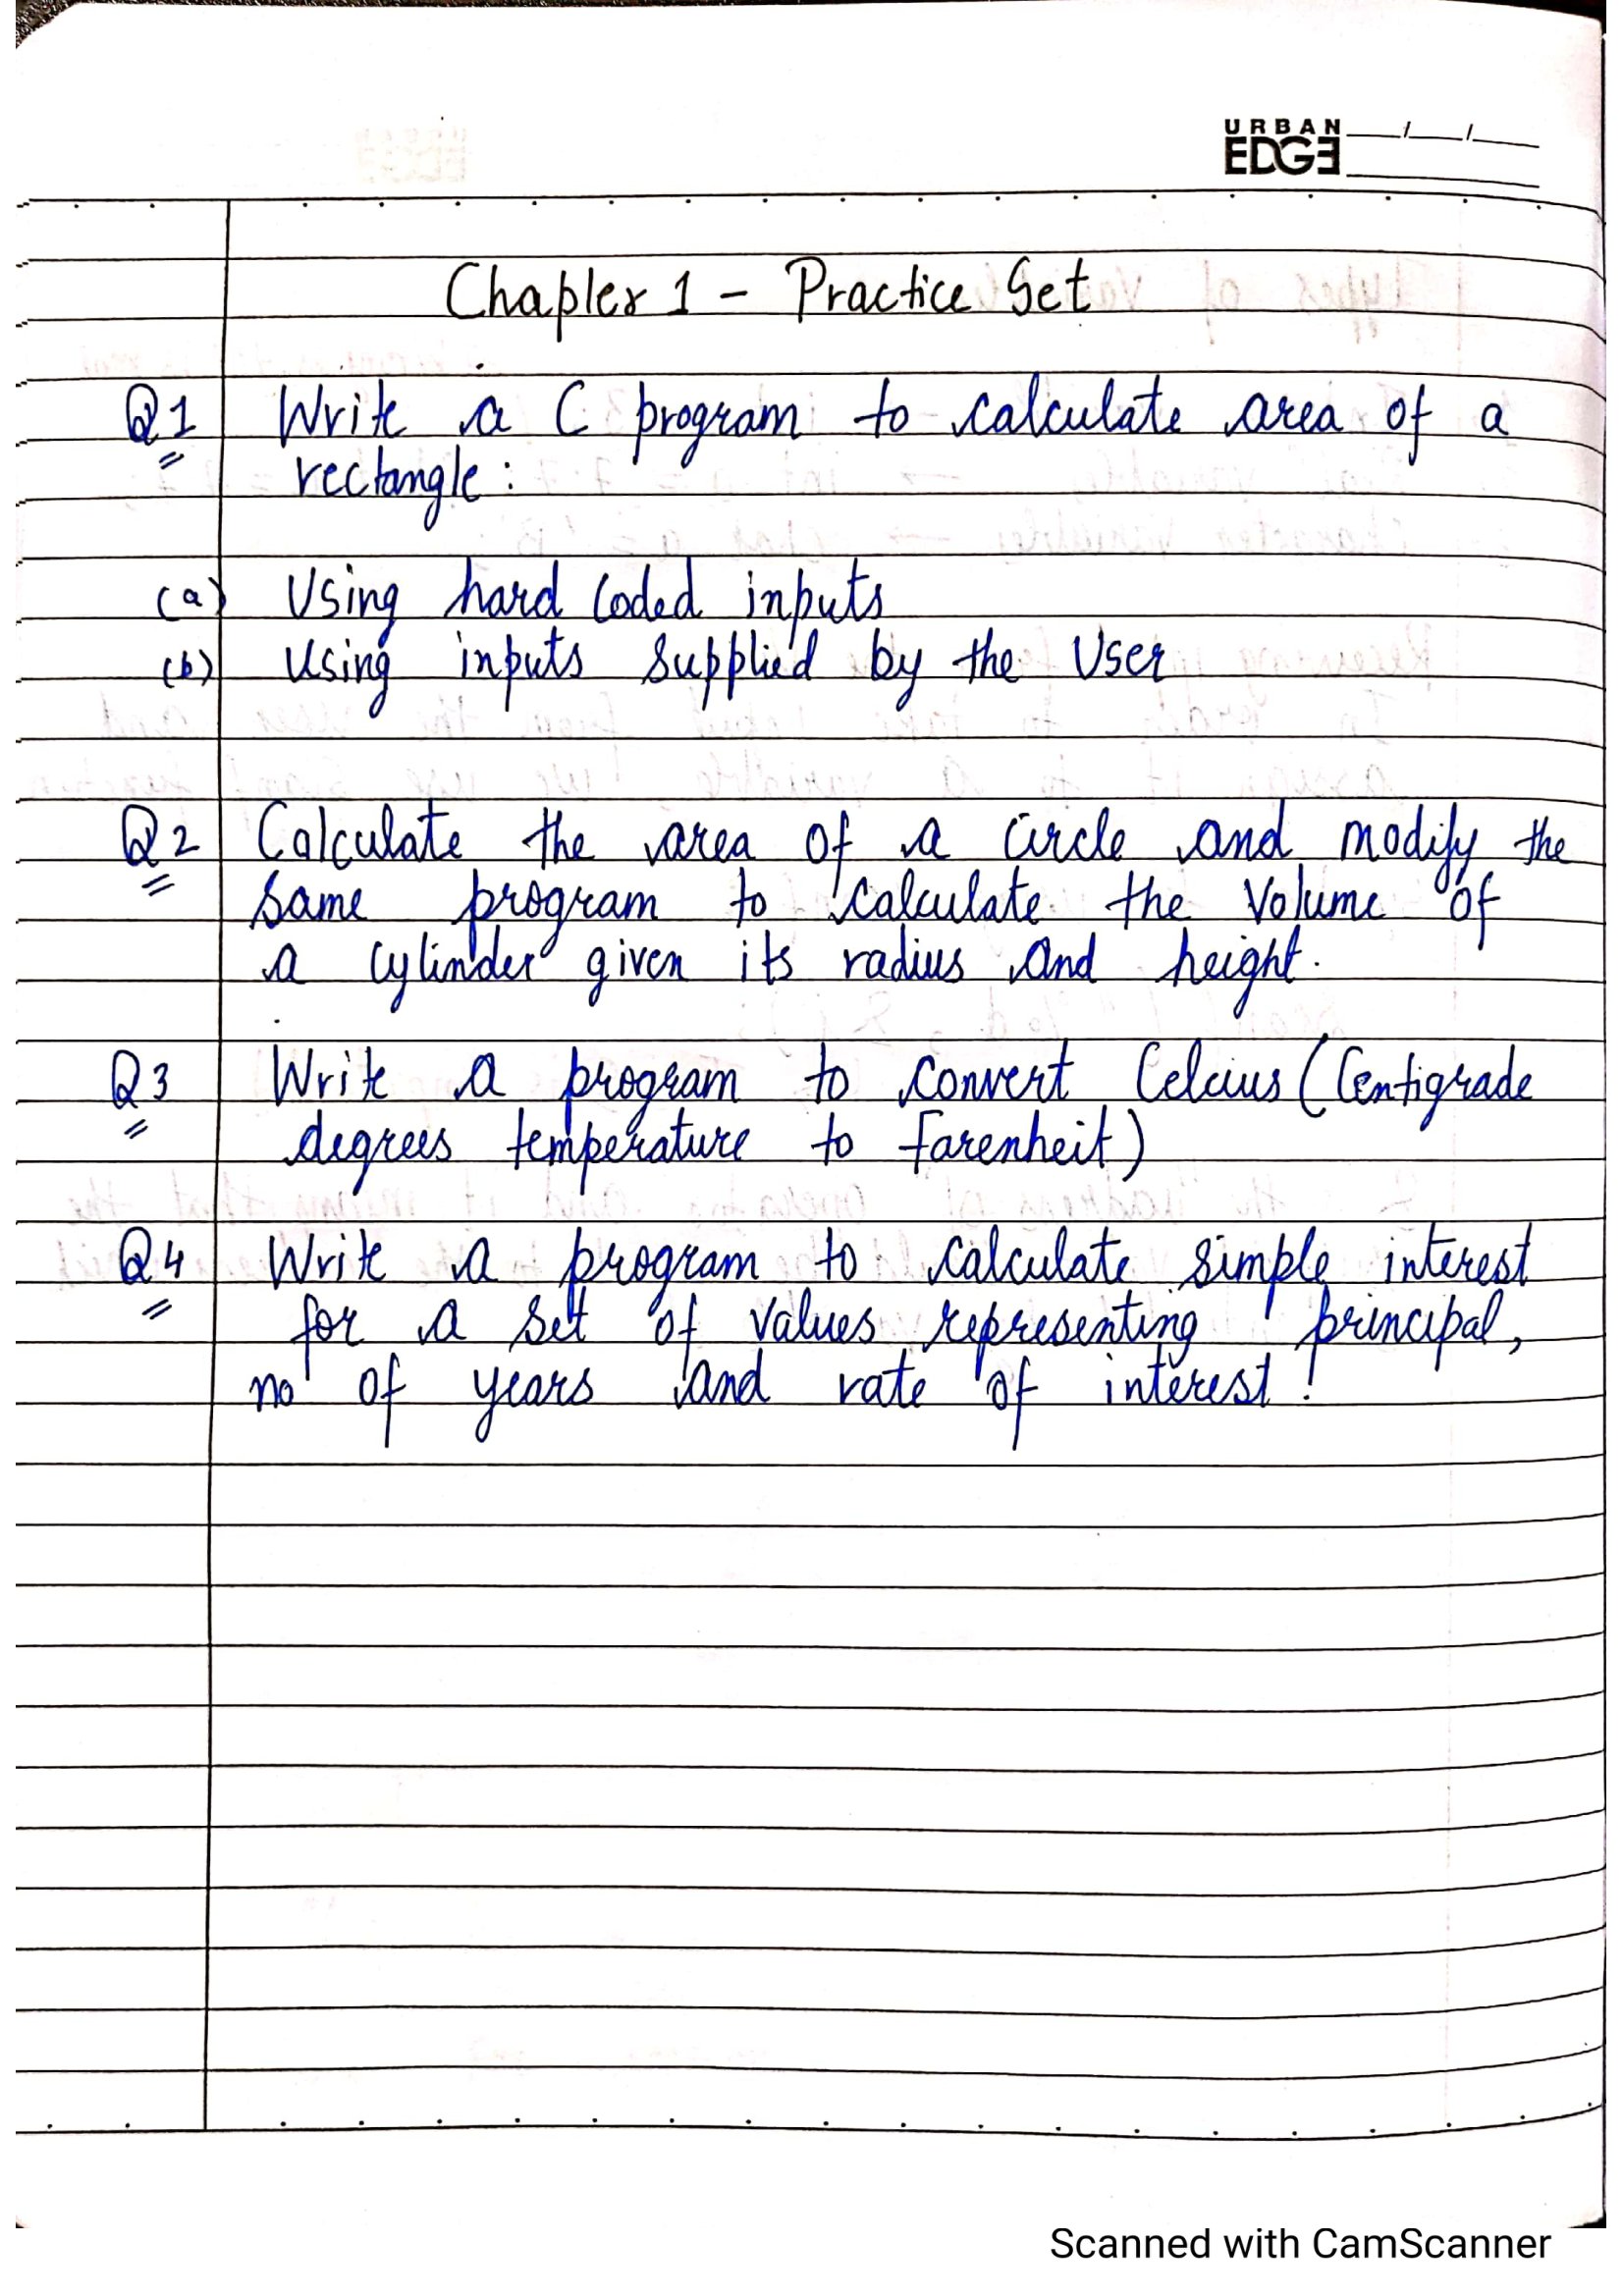 URBAN
EDGE
Chapter 1 - Practice Set
Q1 Write a C program to calculate area of a
rectangle :
(a) Using hard coded inputs
(b) Using inputs supplied by the User
Q2 Calculate the area of a circle and modify the
same program to calculate the volume of
a cylinder given its radius and height.
Q3 Write a program to convert Celcius (Centigrade
degrees temperature to Farenheit)
Q4 Write a program to calculate simple interest
for a set of values representing principal,
no of years and rate of interest.
Scanned with CamScanner